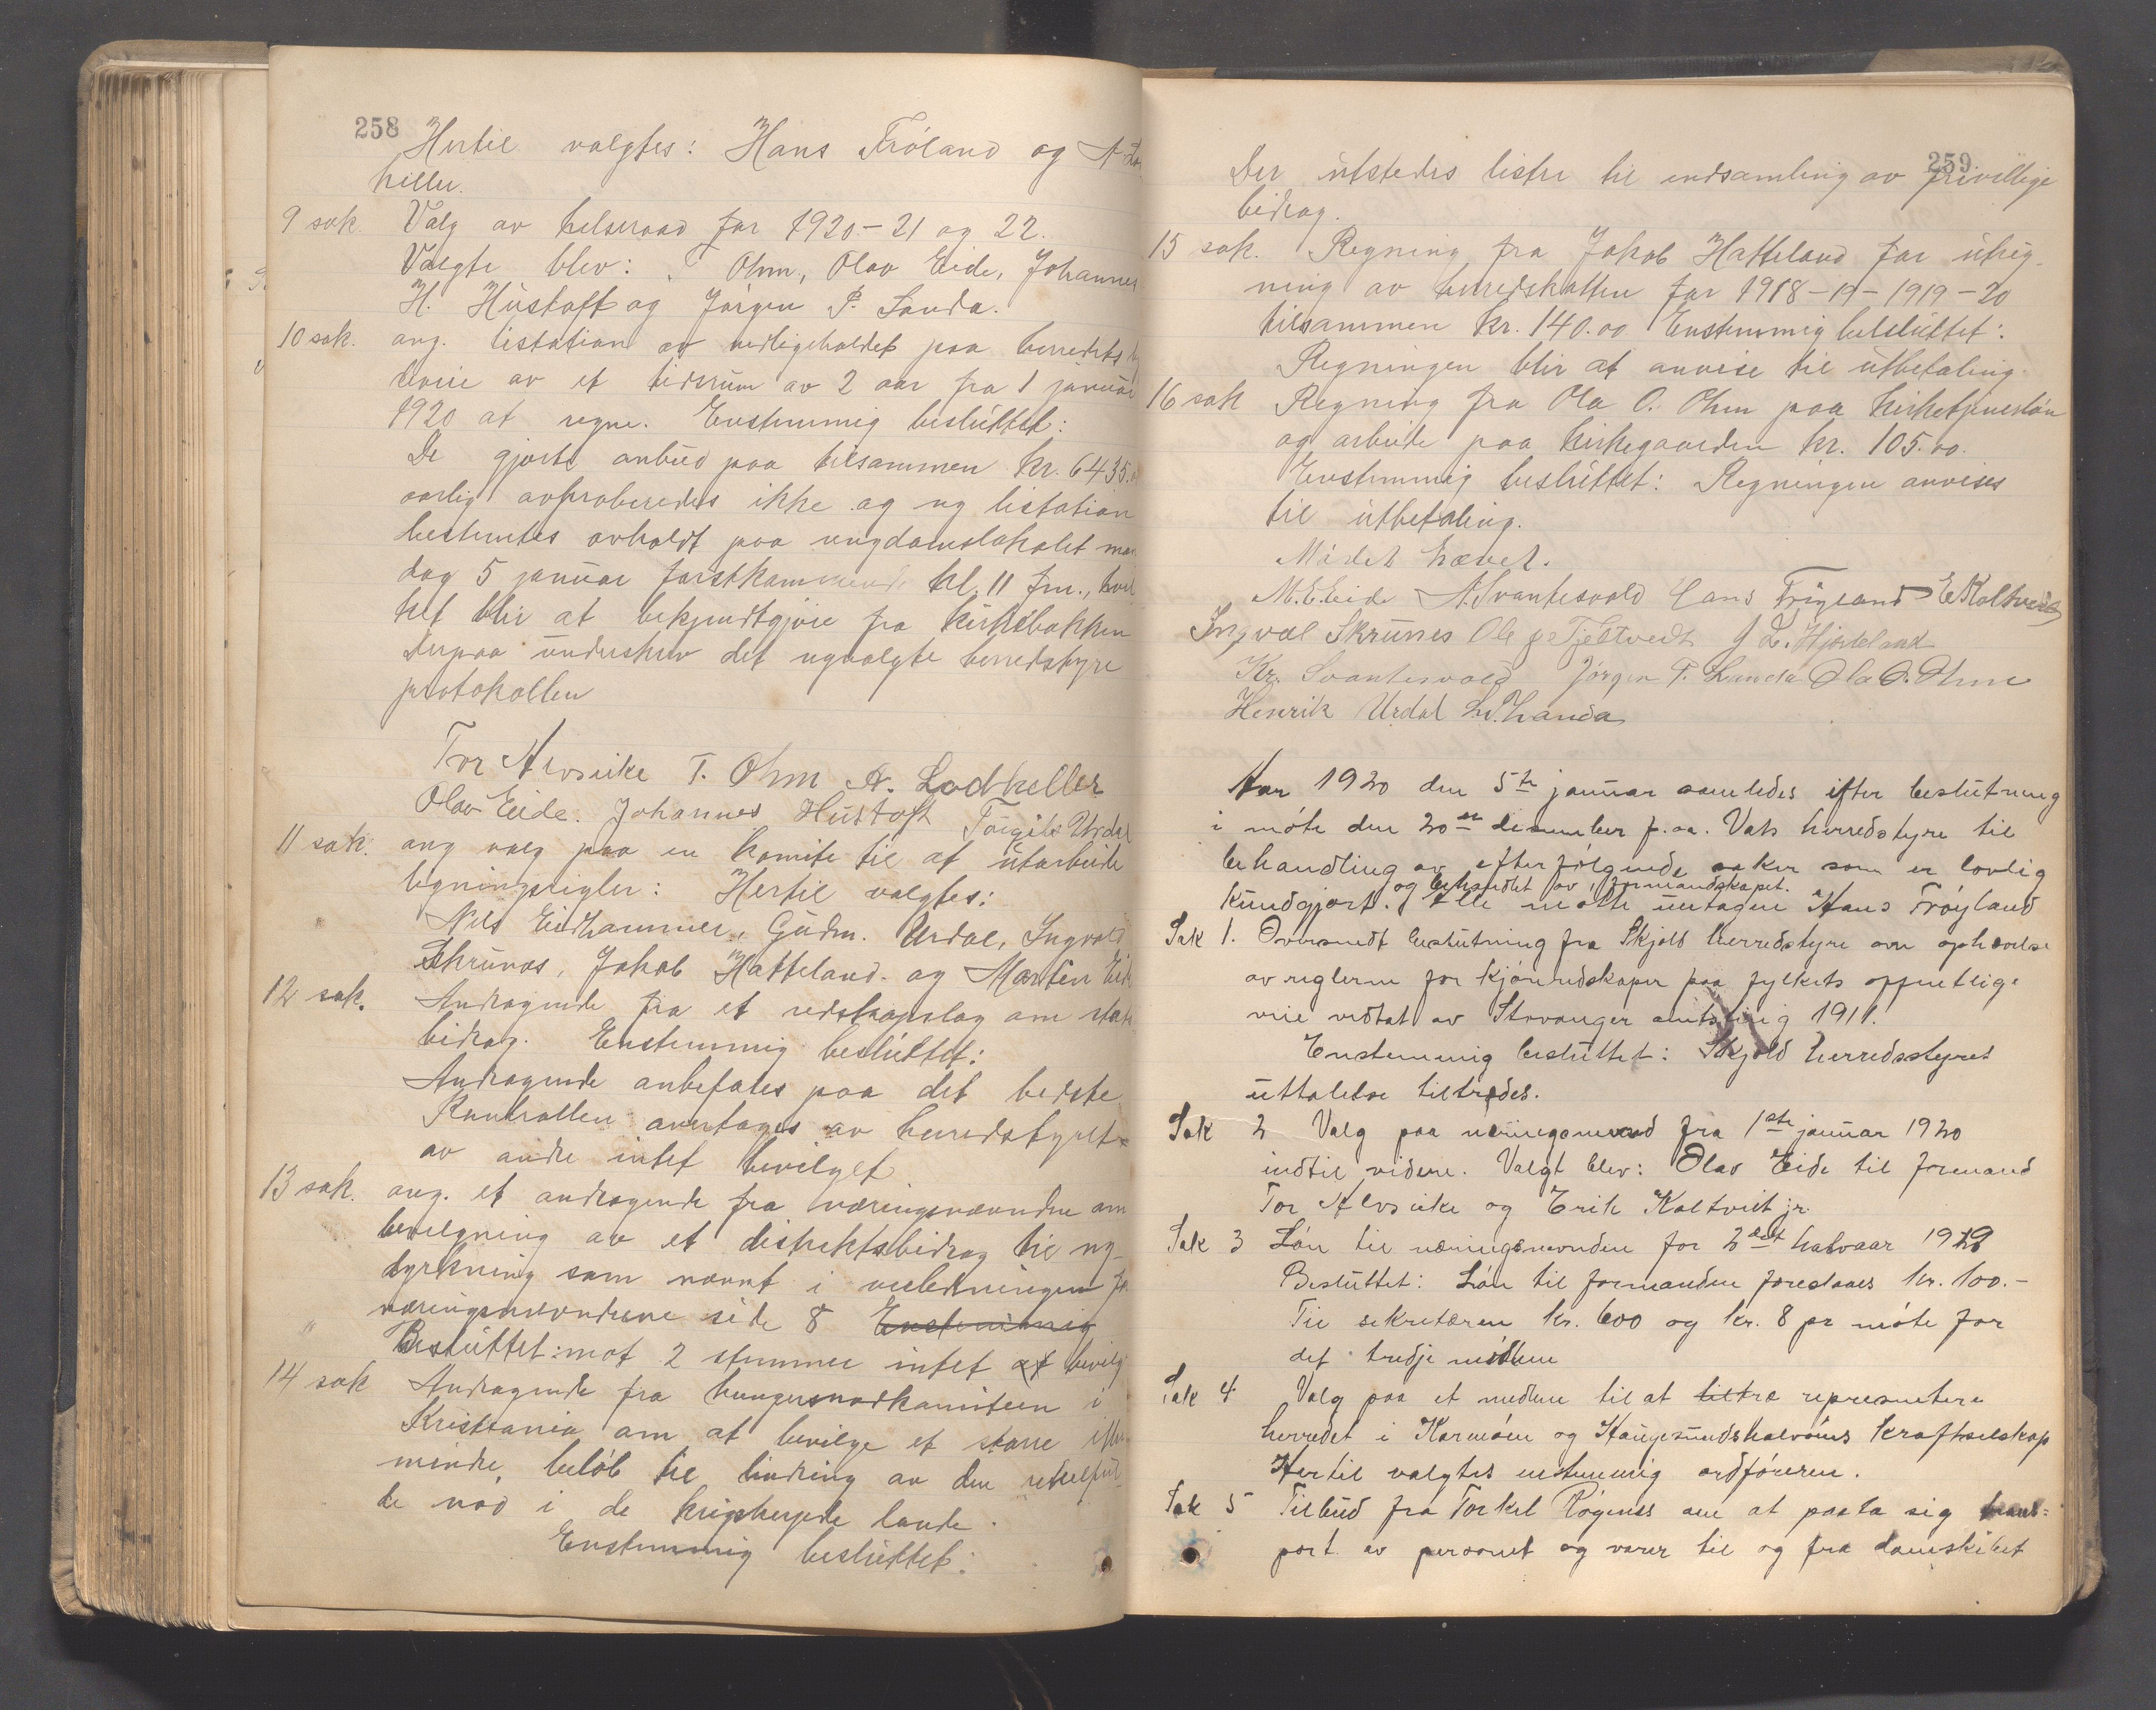 258
Hertil valgtes: Hans Fröland og A. Lod
keller.
9 sak. Valg av helseraad for 1920-21 og 22.
Valgte blev: T Ohm, Olav Eide, Johannes
H. Hustoft og Jörgen P. Landa.
10 sak. ang. listation av vedligeholdet paa herredets
veie av et tidsrum av 2 aar fra 1 januar
1920 at regne. Enstemmig besluttet:
De gjorte anbud paa tilsammen kr. 6435.
aarlig avproberedes ikke og ny listation
bestemtes avholdt paa ungdomslokalet man
dag 5 januar förstkommende kl. 11 fm., hvil
ket blir at bekjendtgjöre fra kirkebakken
Derpaa underskrev det nyvalgte herredstyre
protokollen
Tor Alvseike T. Ohm A. Lodkeller
Olav Eide. Johannes Hustoft Torgils Urdal
11 sak. ang valg paa en komite til at utarbeide
ligningsregler: Hertil valgtes:
Nils Eidhammer, Gudm. Urdal, Ingvald
Skrunes, Jakob Hatteland. og Martin Eide
12 sak. Andragende fra et redskapslag om stats
bidrag. Enstemmig besluttet:
Andragende anbefales paa det bedste
Kontrollen overtages av herredstyret
av andre intet bevilget
13 sak. ang. et andragende fra næringsnævnden om
bevilgning av et distriktsbidrag til ny-
dyrkning som nævnt i veiledningen for
næringsnævndene side 8 Enstemmig
Besluttet: mot 2 stemmer intet at bevilg
14 sak Andragende fra hungersnödkomiteen i
Kristiania om at bevilge et större eller
mindre beløb til lindring av den
de nöd i de krigsherjede lande.
Enstemmig besluttet:
259
Der utstedes lister til indsamling av frivillige
bidrag.
15 sak. Regning fra Jakob Hatteland for utreg-
ning av herredskatten for 1918-19-1919-20
tilsammen kr. 140.00 Enstemmig besluttet:
Regningen blir at anvise til utbetaling.
16 sak Regning fra Ola O. Ohm paa kirketjenerlön
og arbeide paa kirkegaarden kr. 105.00.
Enstemmig besluttet: Regningen anvises
til utbetaling.
Mödet hævet.
M. E. Eide A. Svantesvold Hans Fröyland E Koltveid
Ingval Skrunes Ole J. Fjeltvedt J L. Hjorteland
Kr. Svantesvold Jörgen P. Landa Ola O. Ohm
Henrik Urdal L. Landa
Aar 1920 den 5te januar samledes efter beslutning
i möte den 20de desember f. aa. Vats herredstyre til
behandling av efterfölgende saker som er lovlig
og behandlet av formandskapet.
kundgjort. Alle mötte untagen Hans Fröyland
Sak 1. Oversendt beslutning fra Skjold herredstyre om ophævelse
av reglerne for kjöreredskaper paa fylkets offentlige
veie vedtat av Stavanger amtsting 1911.
Enstemmig besluttet: Skjold herredsstyret
uttalelse tiltrædes.
Sak 2 Valg paa næringsnevnd fra 1ste januar 1920
indtil videre. Valgt blev: Olav Eide til formand
Tor Alvseike og Erik Koltveit jr.
Sak 3 Lön til næringsnevnden for 2det halvaar 1919
Besluttet: Lön til formanden foreslaaes kr. 100.-
Til sekretæren kr. 600 og kr. 8 pr möte for
det tredje medlem
Sak 4 Valg paa et medlem til at tiltræ representere
herredet i Karmöen og Haugesundshalvöens kraftselskap
Hertil valgtes enstemmig ordföreren.
Sak 5 Tilbud fra Torkel Rögenes om at paata sig trans=
port av personer og varer til og fra damskibet